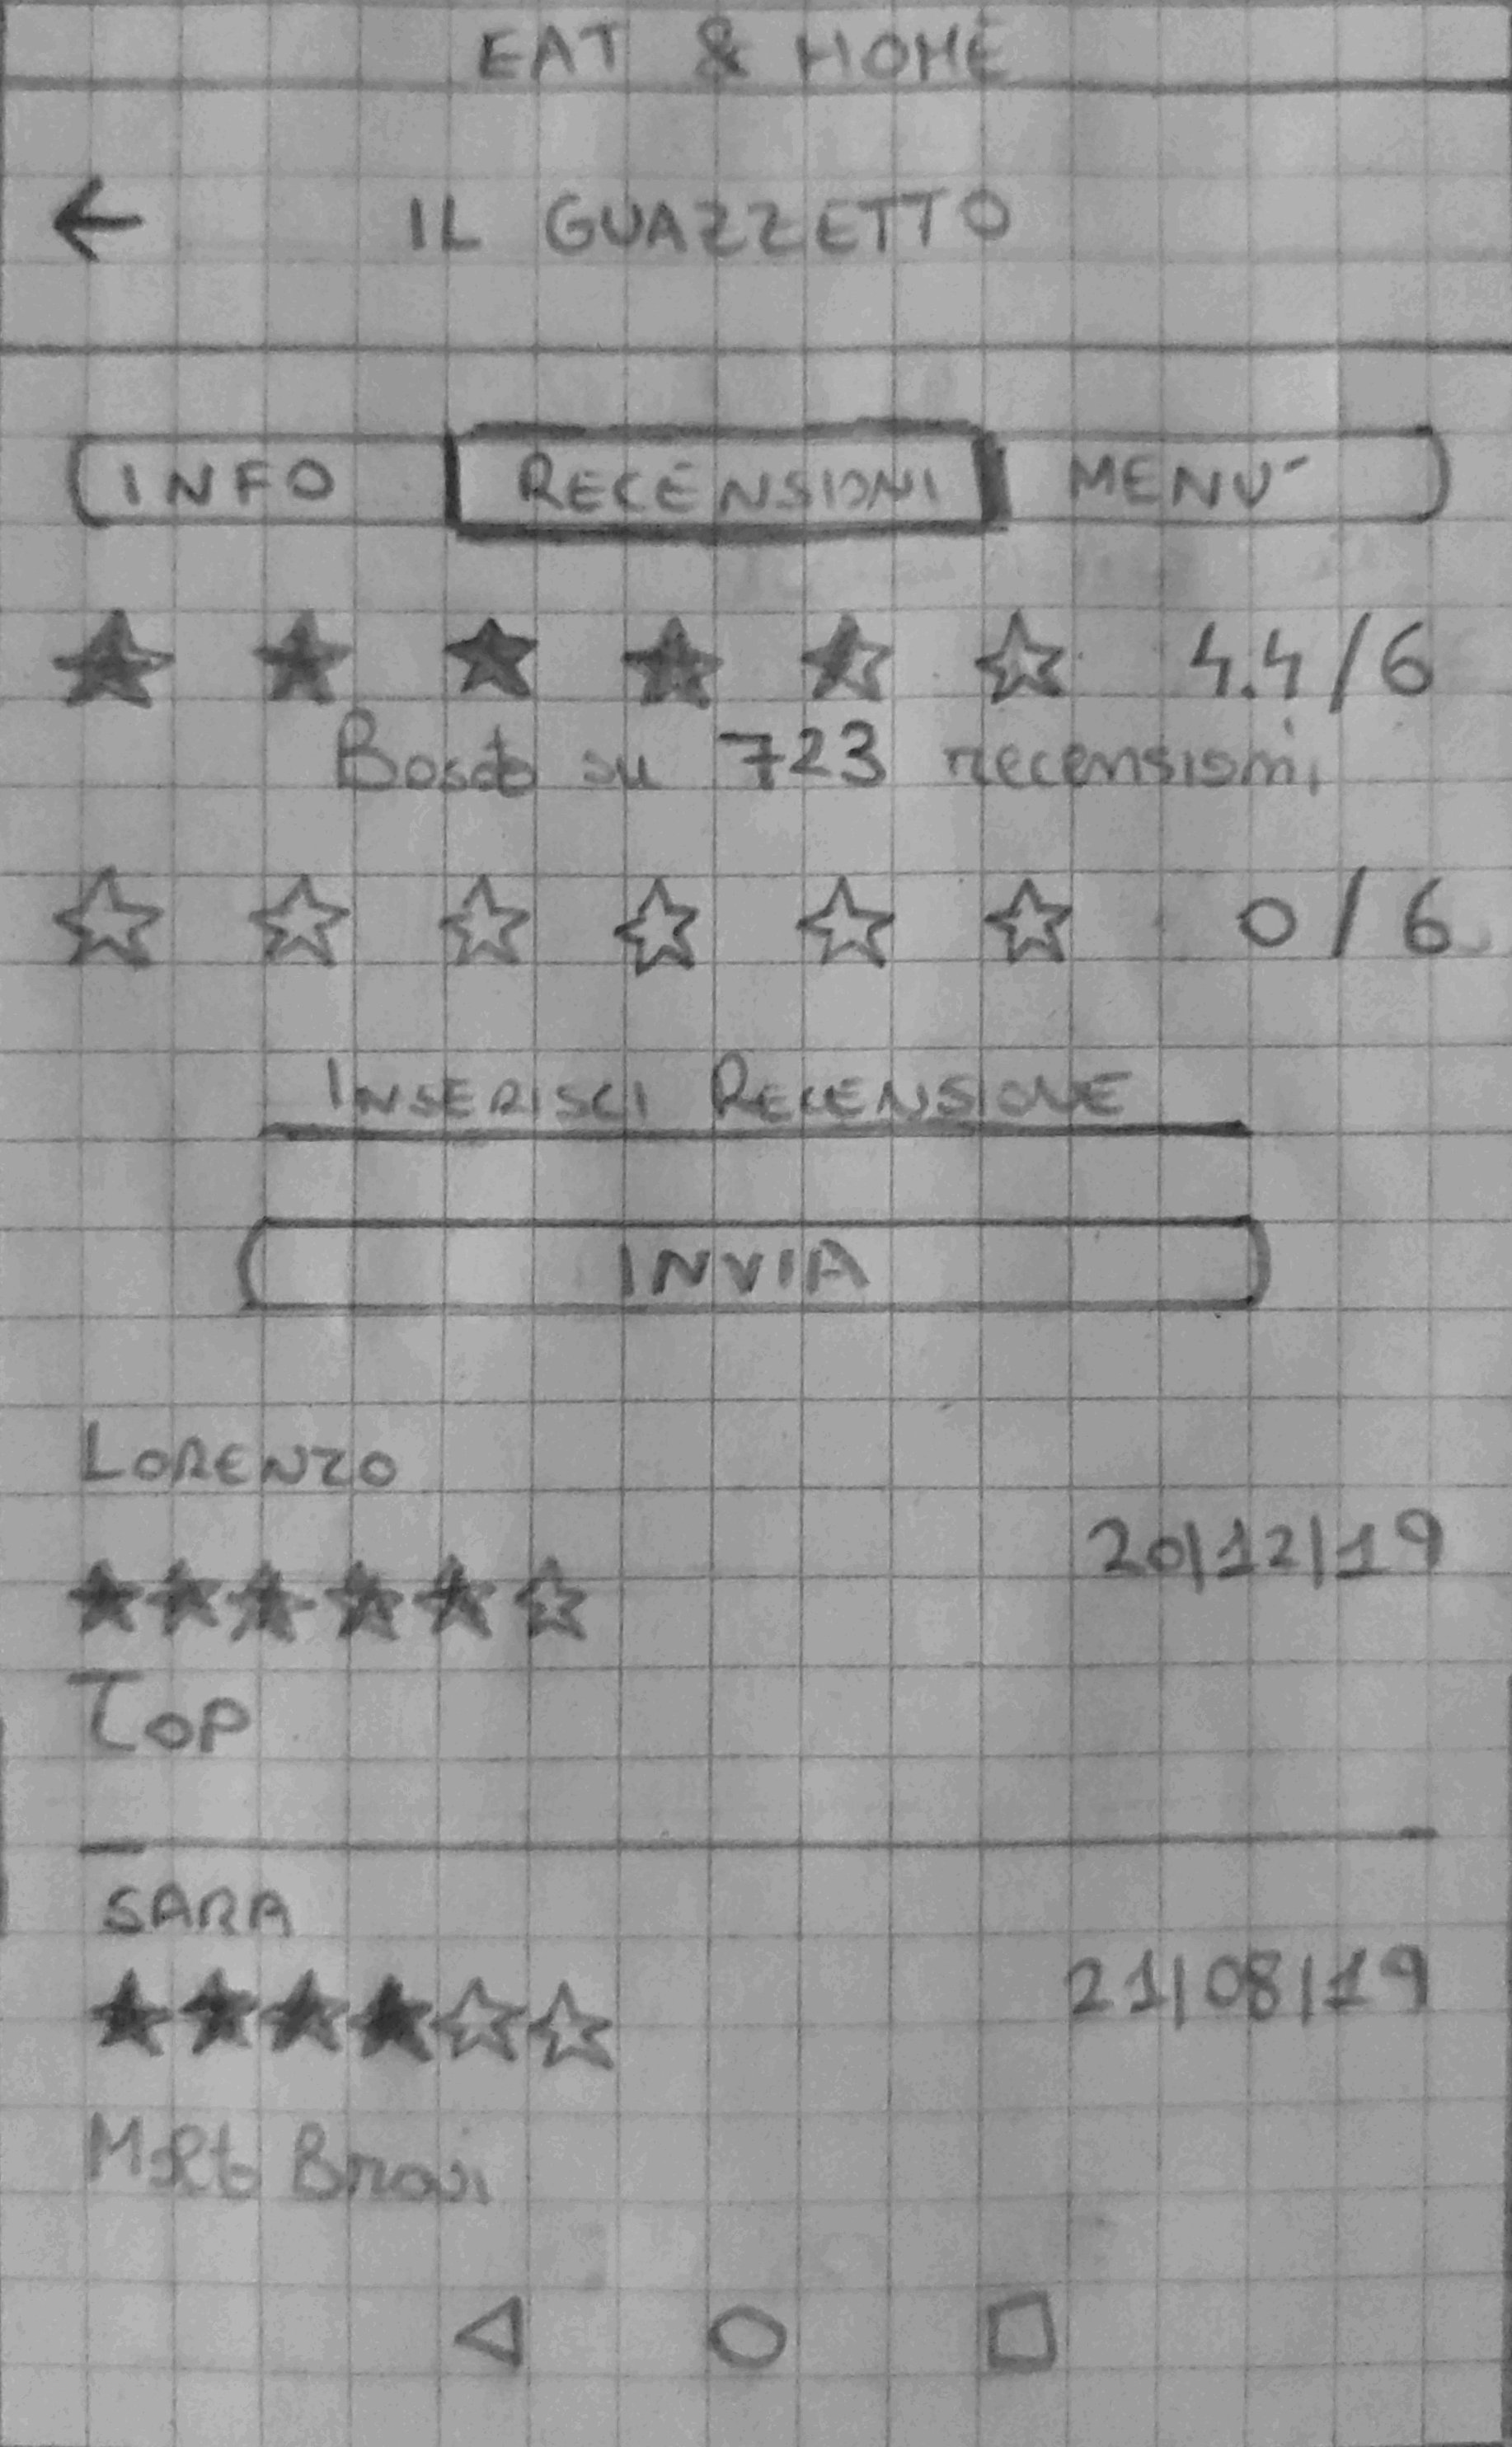 EAT & HOME
← IL GUAZZETTO
INFO RECENSIONI MENU'
4.4/6
Basato su 723 recensioni
0/6
INSERISCI RECENSIONE
INVIA
LORENZO
20/12/19
TOP
SARA
21/08/19
Molto Bravi